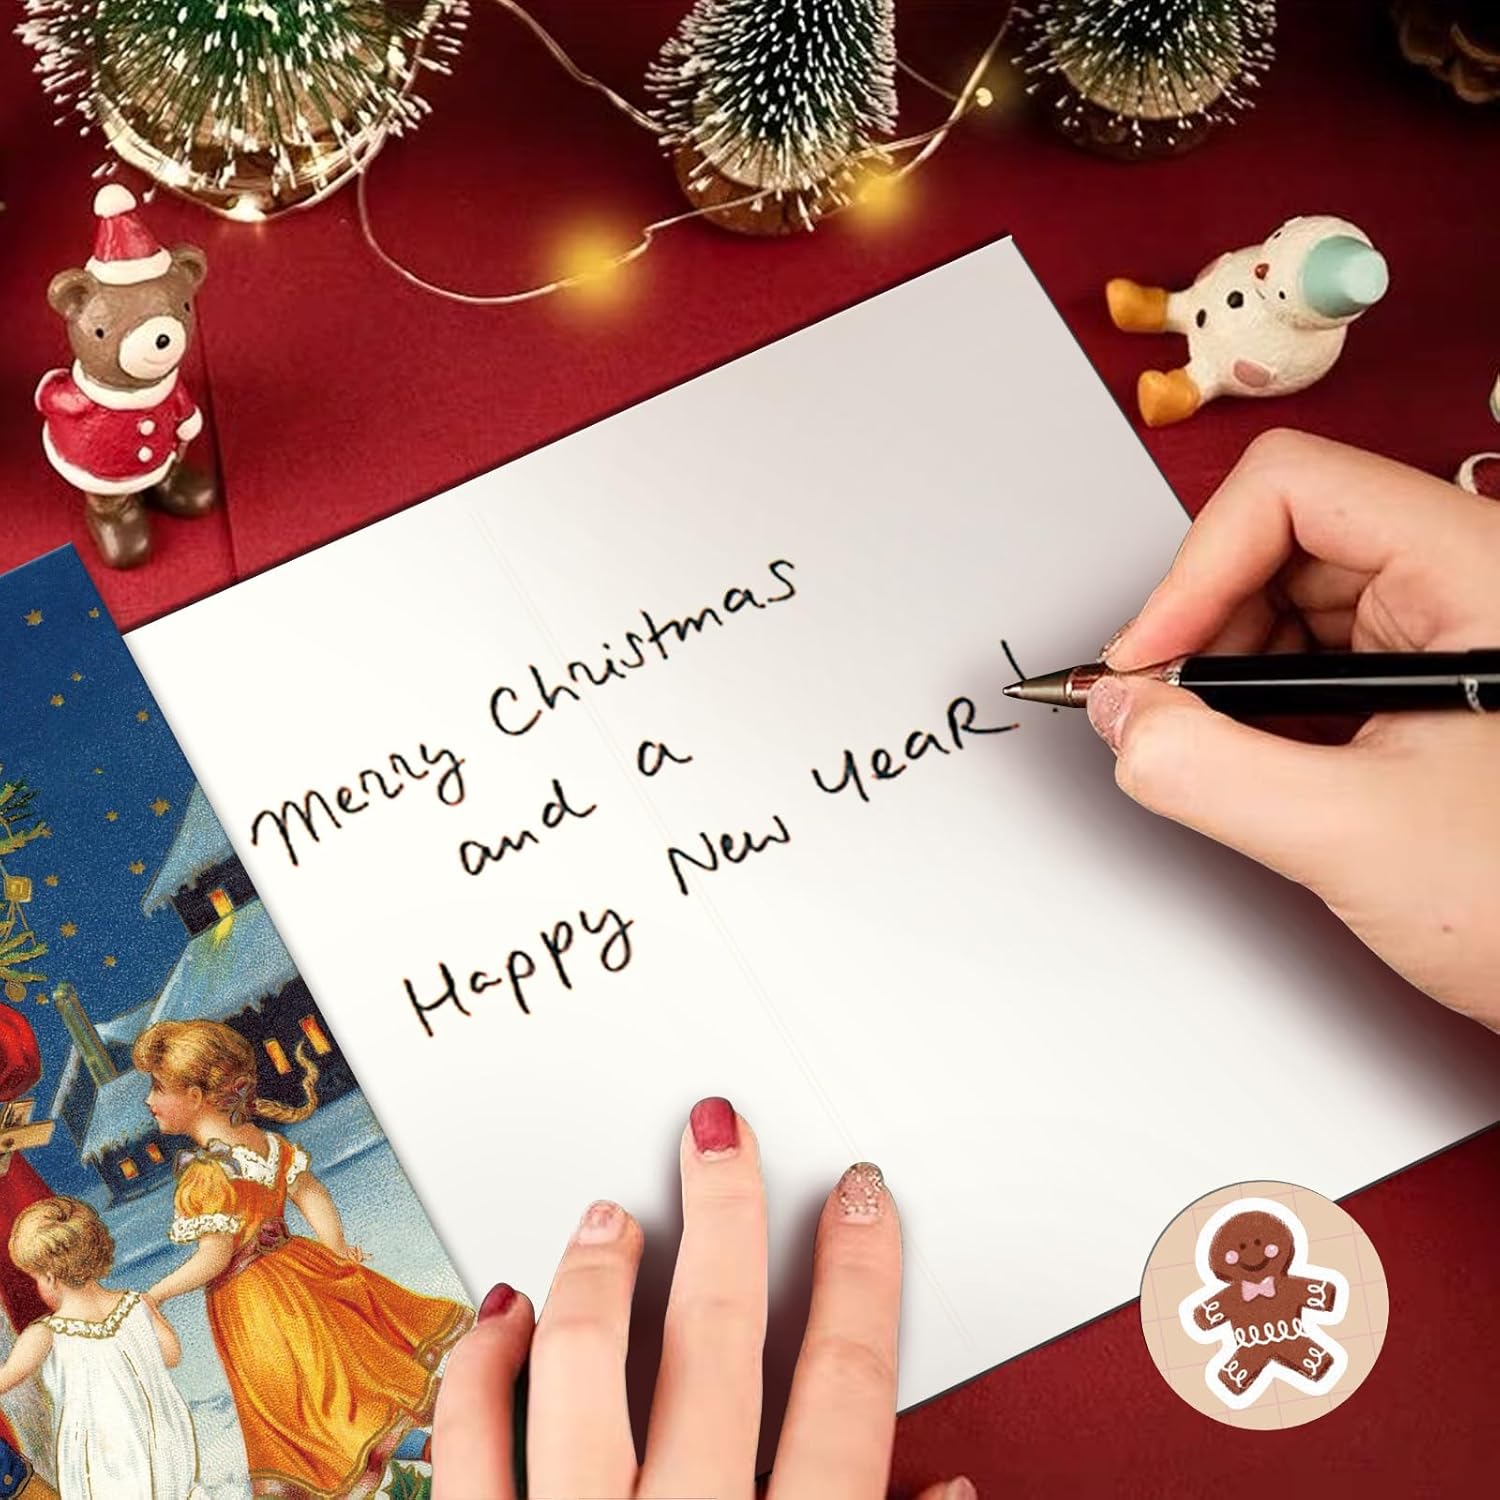 Merry Christmas
and a
Happy New Year!